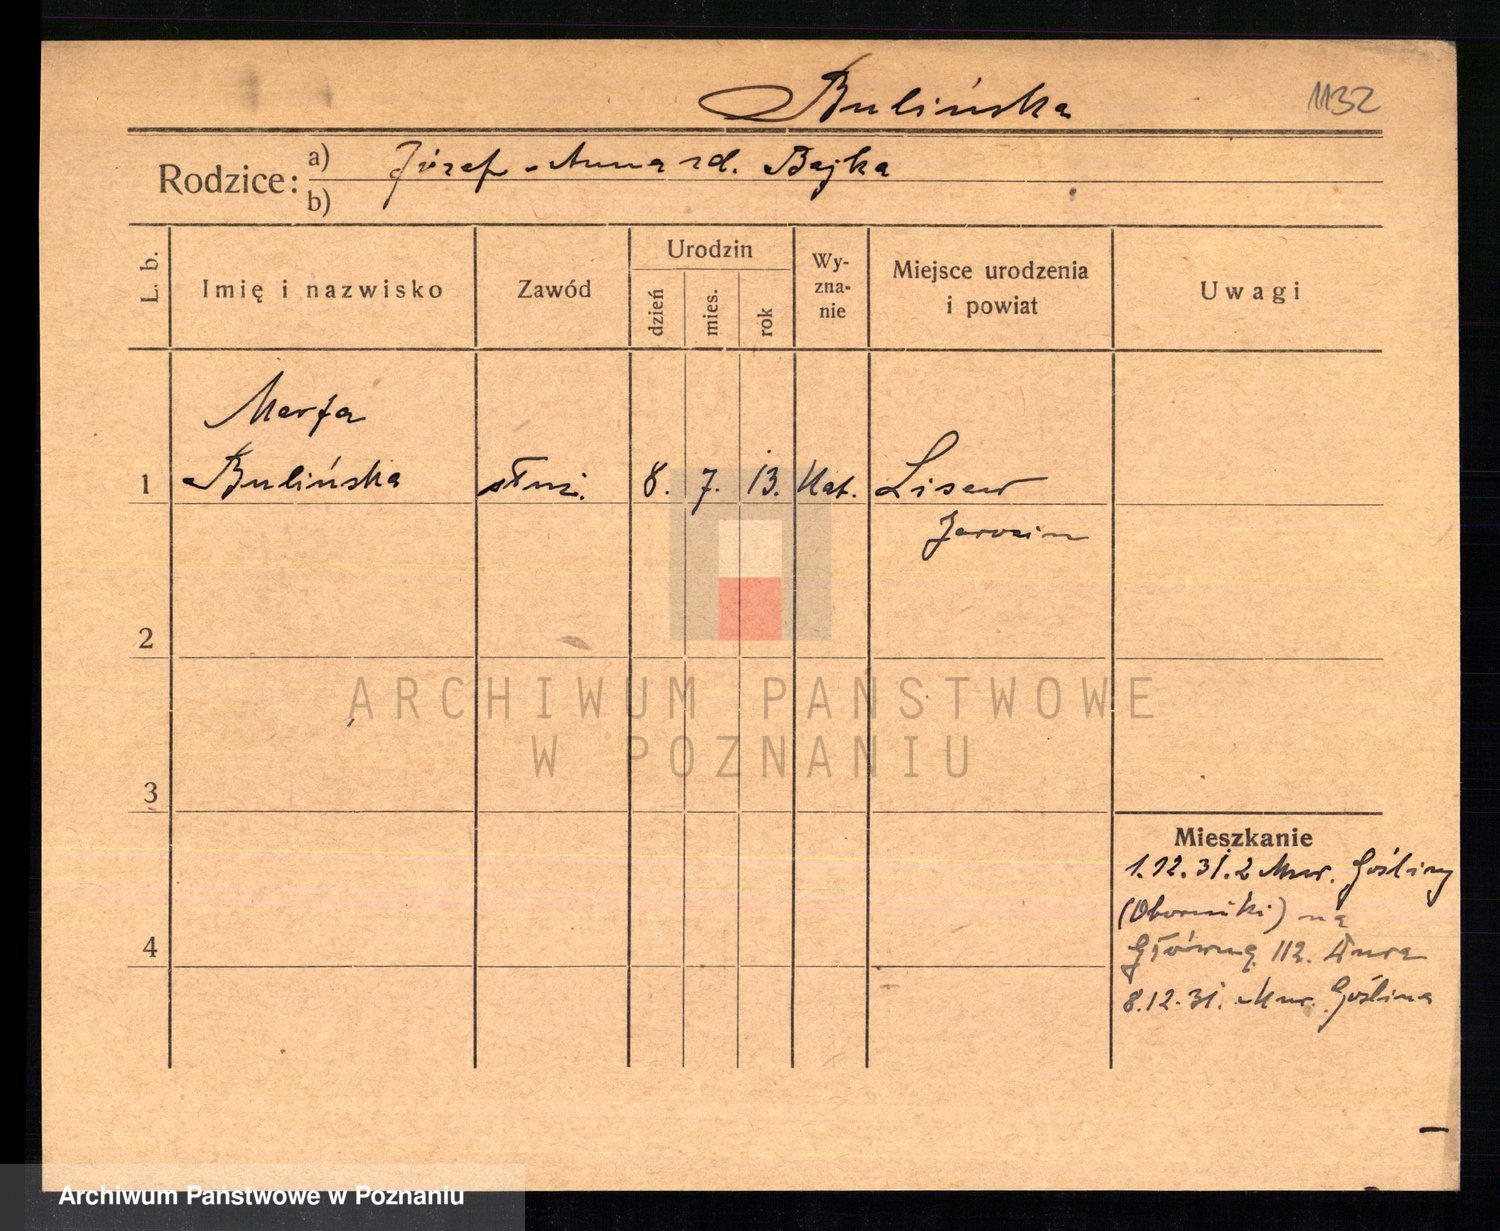 Bulińska
1132
Rodzice: a) Józef - Anna zd. Bajka
b)
L. b. Imię i nazwisko Zawód Urodzin dzień mies. rok Wy-zna-nie Miejsce urodzenia i powiat Uwagi
Marja
1 Bulińska służ. 8. 7. 13. Kat. Lisew
Jarocin
2
ARCHIWUM PAŃSTWOWE
W POZNANIU
3
Mieszkanie
1.12.31. z Mur. Gośliny
(Oborniki) na
4 Główną 112.
8.12.31. Mur. Goślina
Archiwum Państwowe w Poznaniu